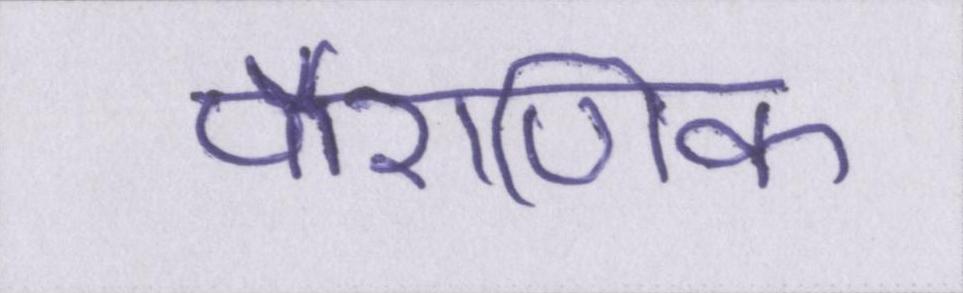 पौराणिक